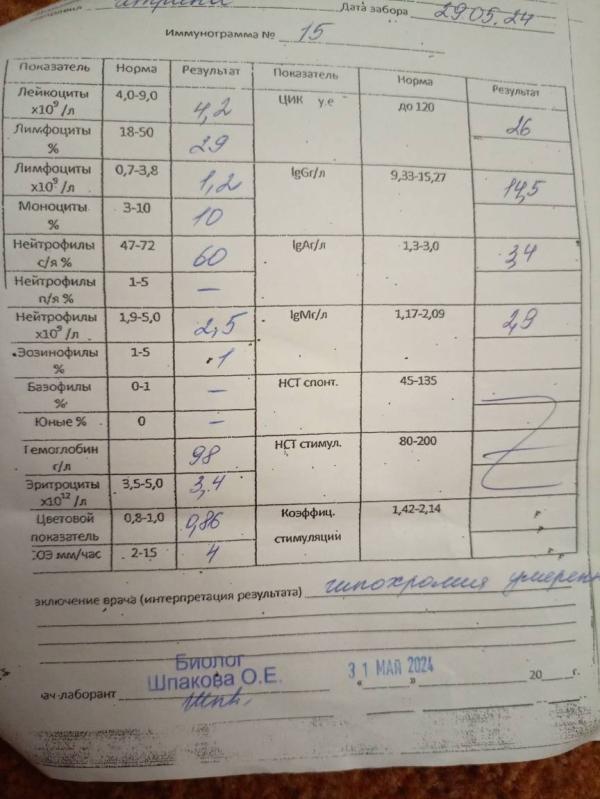 Дата забора 29.05.24
Иммунограмма № 15
Показатель Норма Результат Показатель Норма Результат
Лейкоциты х10⁹/л 4,0-9,0 4,2 ЦИК у.е до 120 26
Лимфоциты % 18-50 29
Лимфоциты х10⁹/л 0,7-3,8 1,2 IgGг/л 9,33-15,27 14,5
Моноциты % 3-10 10
Нейтрофилы с/я % 47-72 60 IgAг/л 1,3-3,0 3,4
Нейтрофилы п/я % 1-5 –
Нейтрофилы х10⁹/л 1,9-5,0 2,5 IgMг/л 1,17-2,09 2,9
Эозинофилы % 1-5 1
Базофилы % 0-1 – НСТ спонт. 45-135
Юные % 0 –
Гемоглобин г/л 98 НСТ стимул. 80-200
Эритроциты х10¹²/л 3,5-5,0 3,4
Цветовой показатель 0,8-1,0 0,86 Коэффиц. стимуляции 1,42-2,14
СОЭ мм/час 2-15 4
заключение врача (интерпретация результата) гипохромия умерен
Биолог
Шпакова О.Е.
31 МАЙ 2024
«    » 20 г.
ач-лаборант